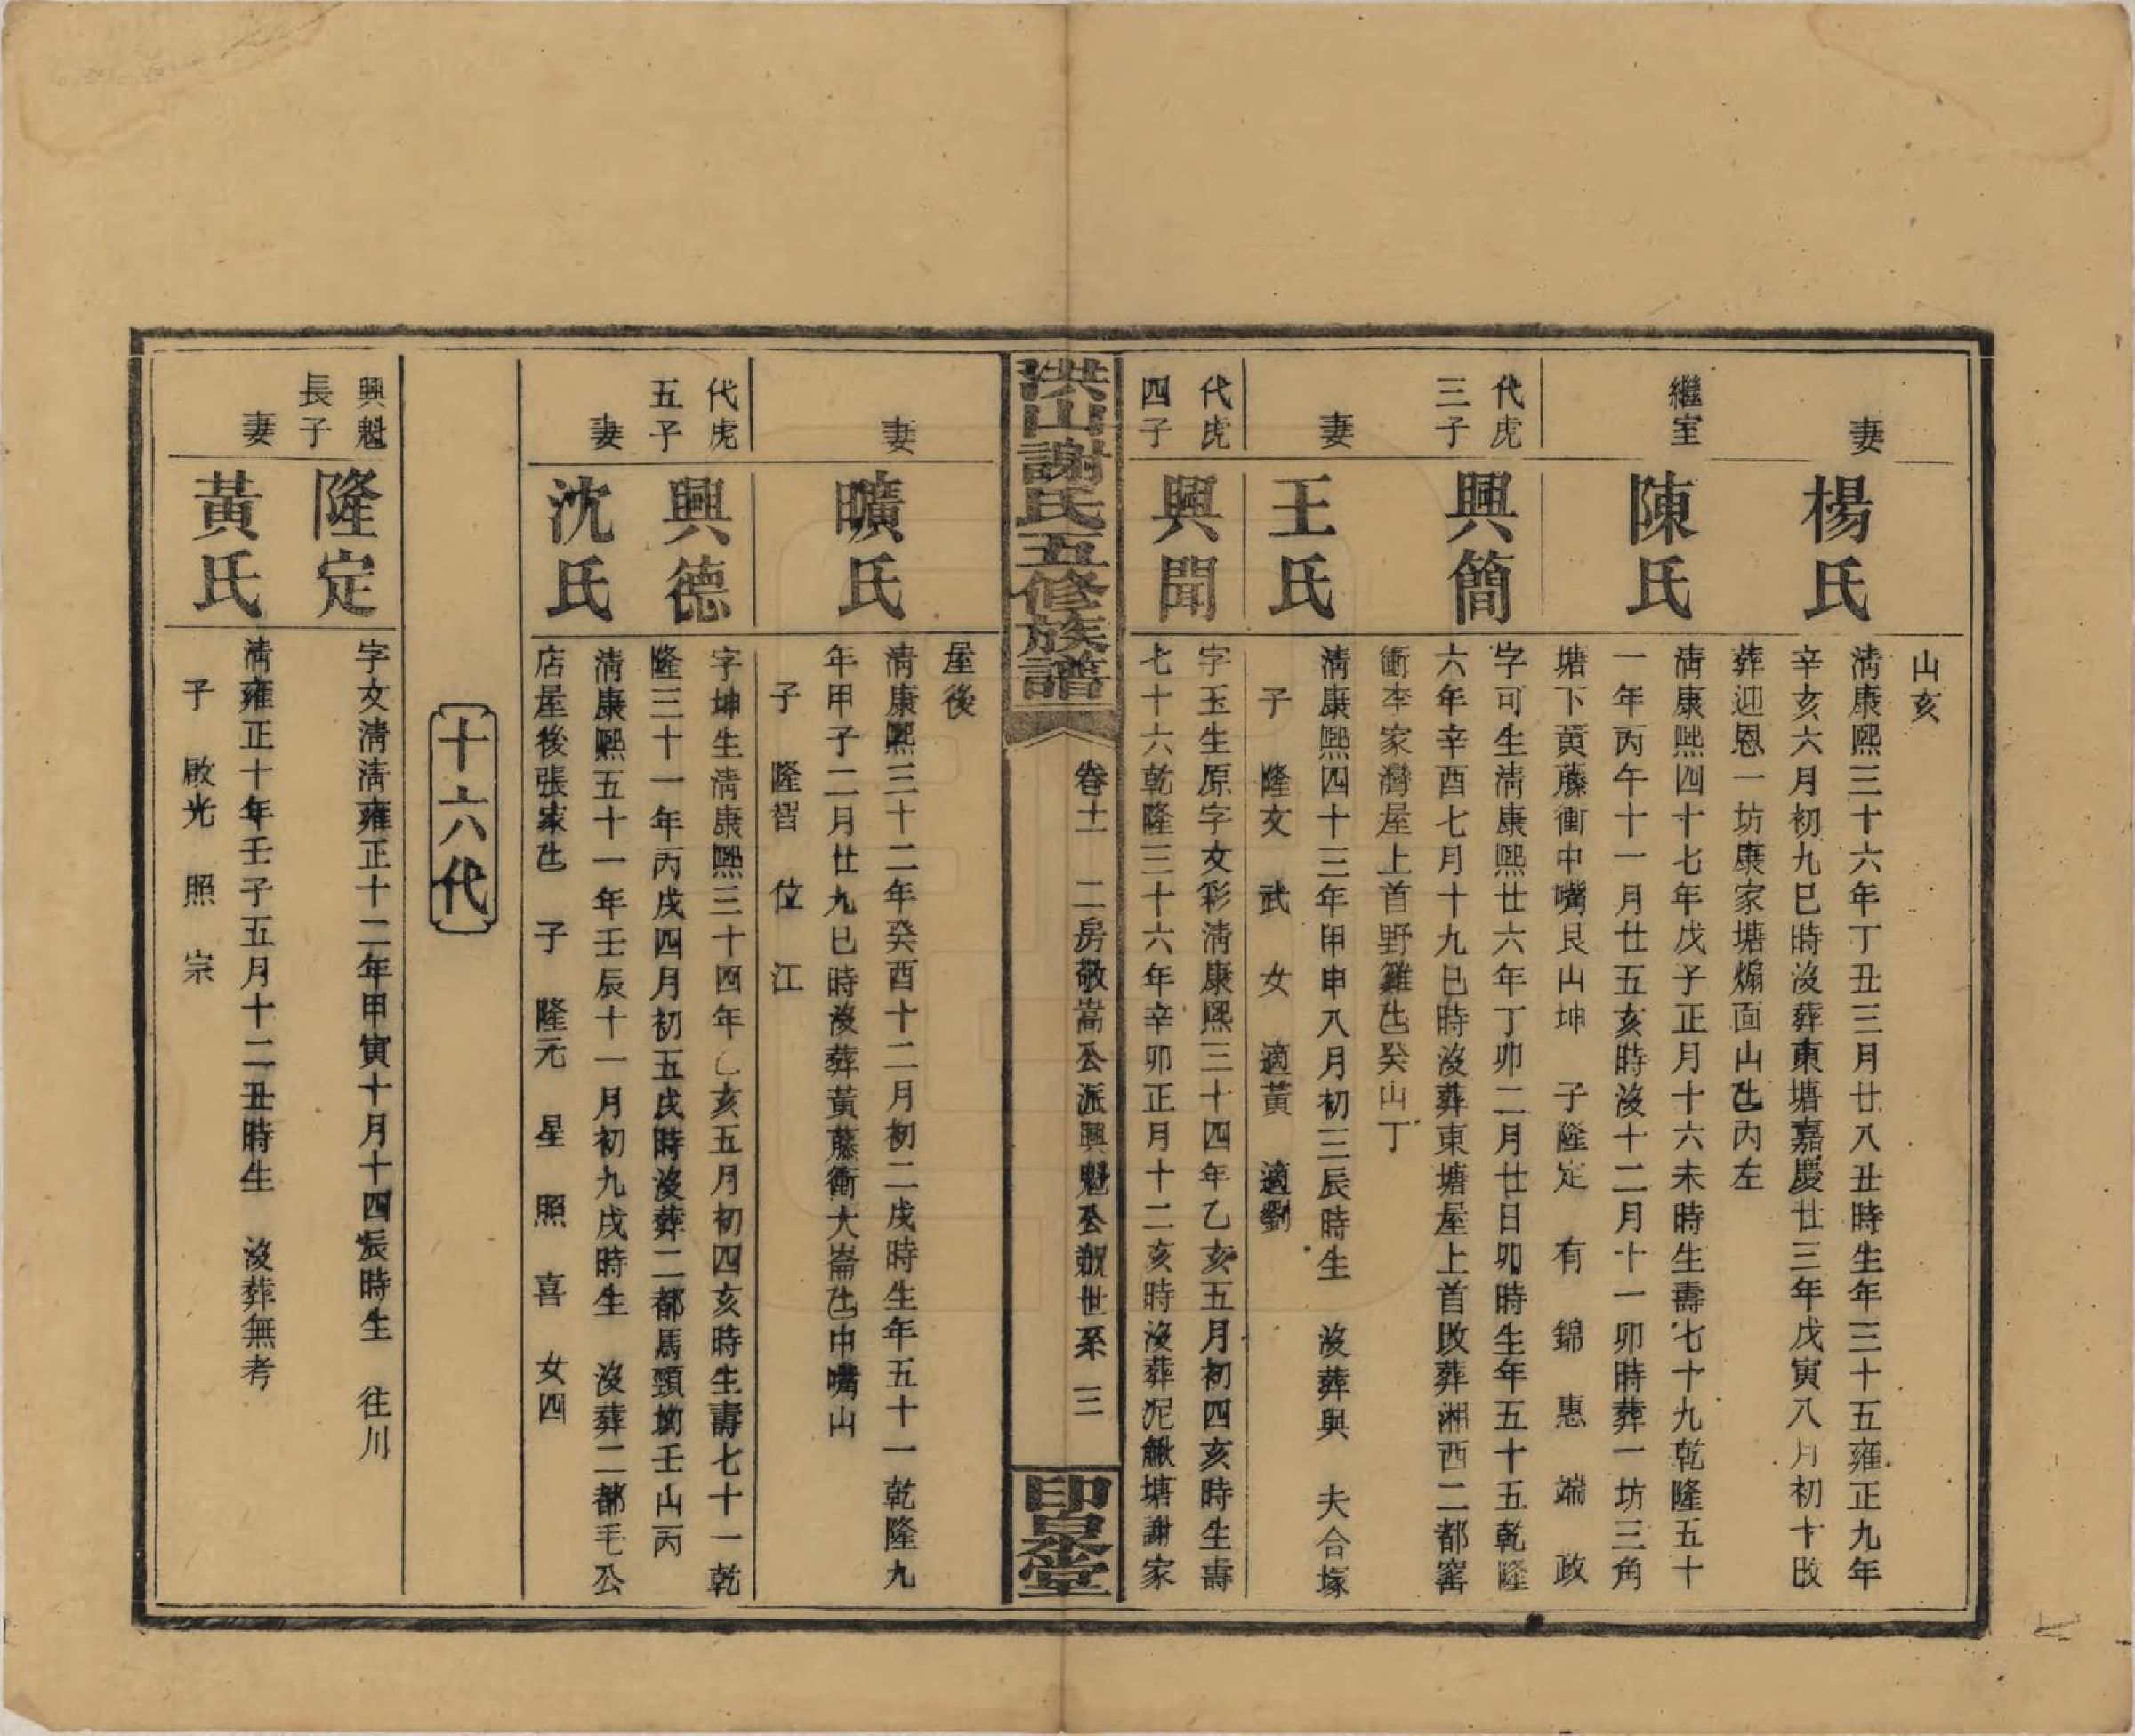 山亥
妻
楊氏
淸康熙三十六年丁丑三月廿八丑時生年三十五雍正九年
辛亥六月初九巳時沒葬東塘嘉慶廿三年戊寅八月初十改
葬迎恩一坊康家塘煽面山𠃊丙左
繼室
陳氏
淸康熙四十七年戊子正月十六未時生壽七十九乾隆五十
一年丙午十一月廿五亥時沒十二月十一卯時葬一坊三角
塘下黄藤衝中嘴艮山坤 子隆定 有 錦 惠 端 政
代虎
三子
興簡
字可生淸康熙廿六年丁卯二月廿日卯時生年五十五乾隆
六年辛酉七月十九巳時沒葬東塘屋上首改葬湘西二都窰
衝李家灣屋上首野雞𠃊癸山丁
妻
王氏
淸康熙四十三年甲申八月初三辰時生 沒葬與 夫合塚
子 隆文 武 女 適黃 適劉
代虎
四子
興聞
字玉生原字文彩淸康熙三十四年乙亥五月初四亥時生壽
七十六乾隆三十六年辛卯正月十二亥時沒葬泥鰍塘謝家
洪山謝氏五修族譜
卷十一 二房敬嵩公派興魁公韍世系 三
印泉堂
屋後
妻
曠氏
淸康熙三十二年癸酉十二月初二戌時生年五十一乾隆九
年甲子二月廿九巳時沒葬黃藤衝大崙𠃊中嘴山
子 隆智 位 江
代虎
五子
興德
字坤生淸康熙三十四年乙亥五月初四亥時生壽七十一乾
隆三十一年丙戌四月初五戌時沒葬二都馬頸坳壬山丙
妻
沈氏
淸康熙五十一年壬辰十一月初九戌時生 沒葬二都毛公
店屋後張家𠃊 子 隆元 星 照 喜 女四
十六代
興魁
長子
隆定
字文淸淸雍正十二年甲寅十月十四辰時生 往川
妻
黃氏
淸雍正十年壬子五月十二丑時生 沒葬無考
子 啟光 照 宗